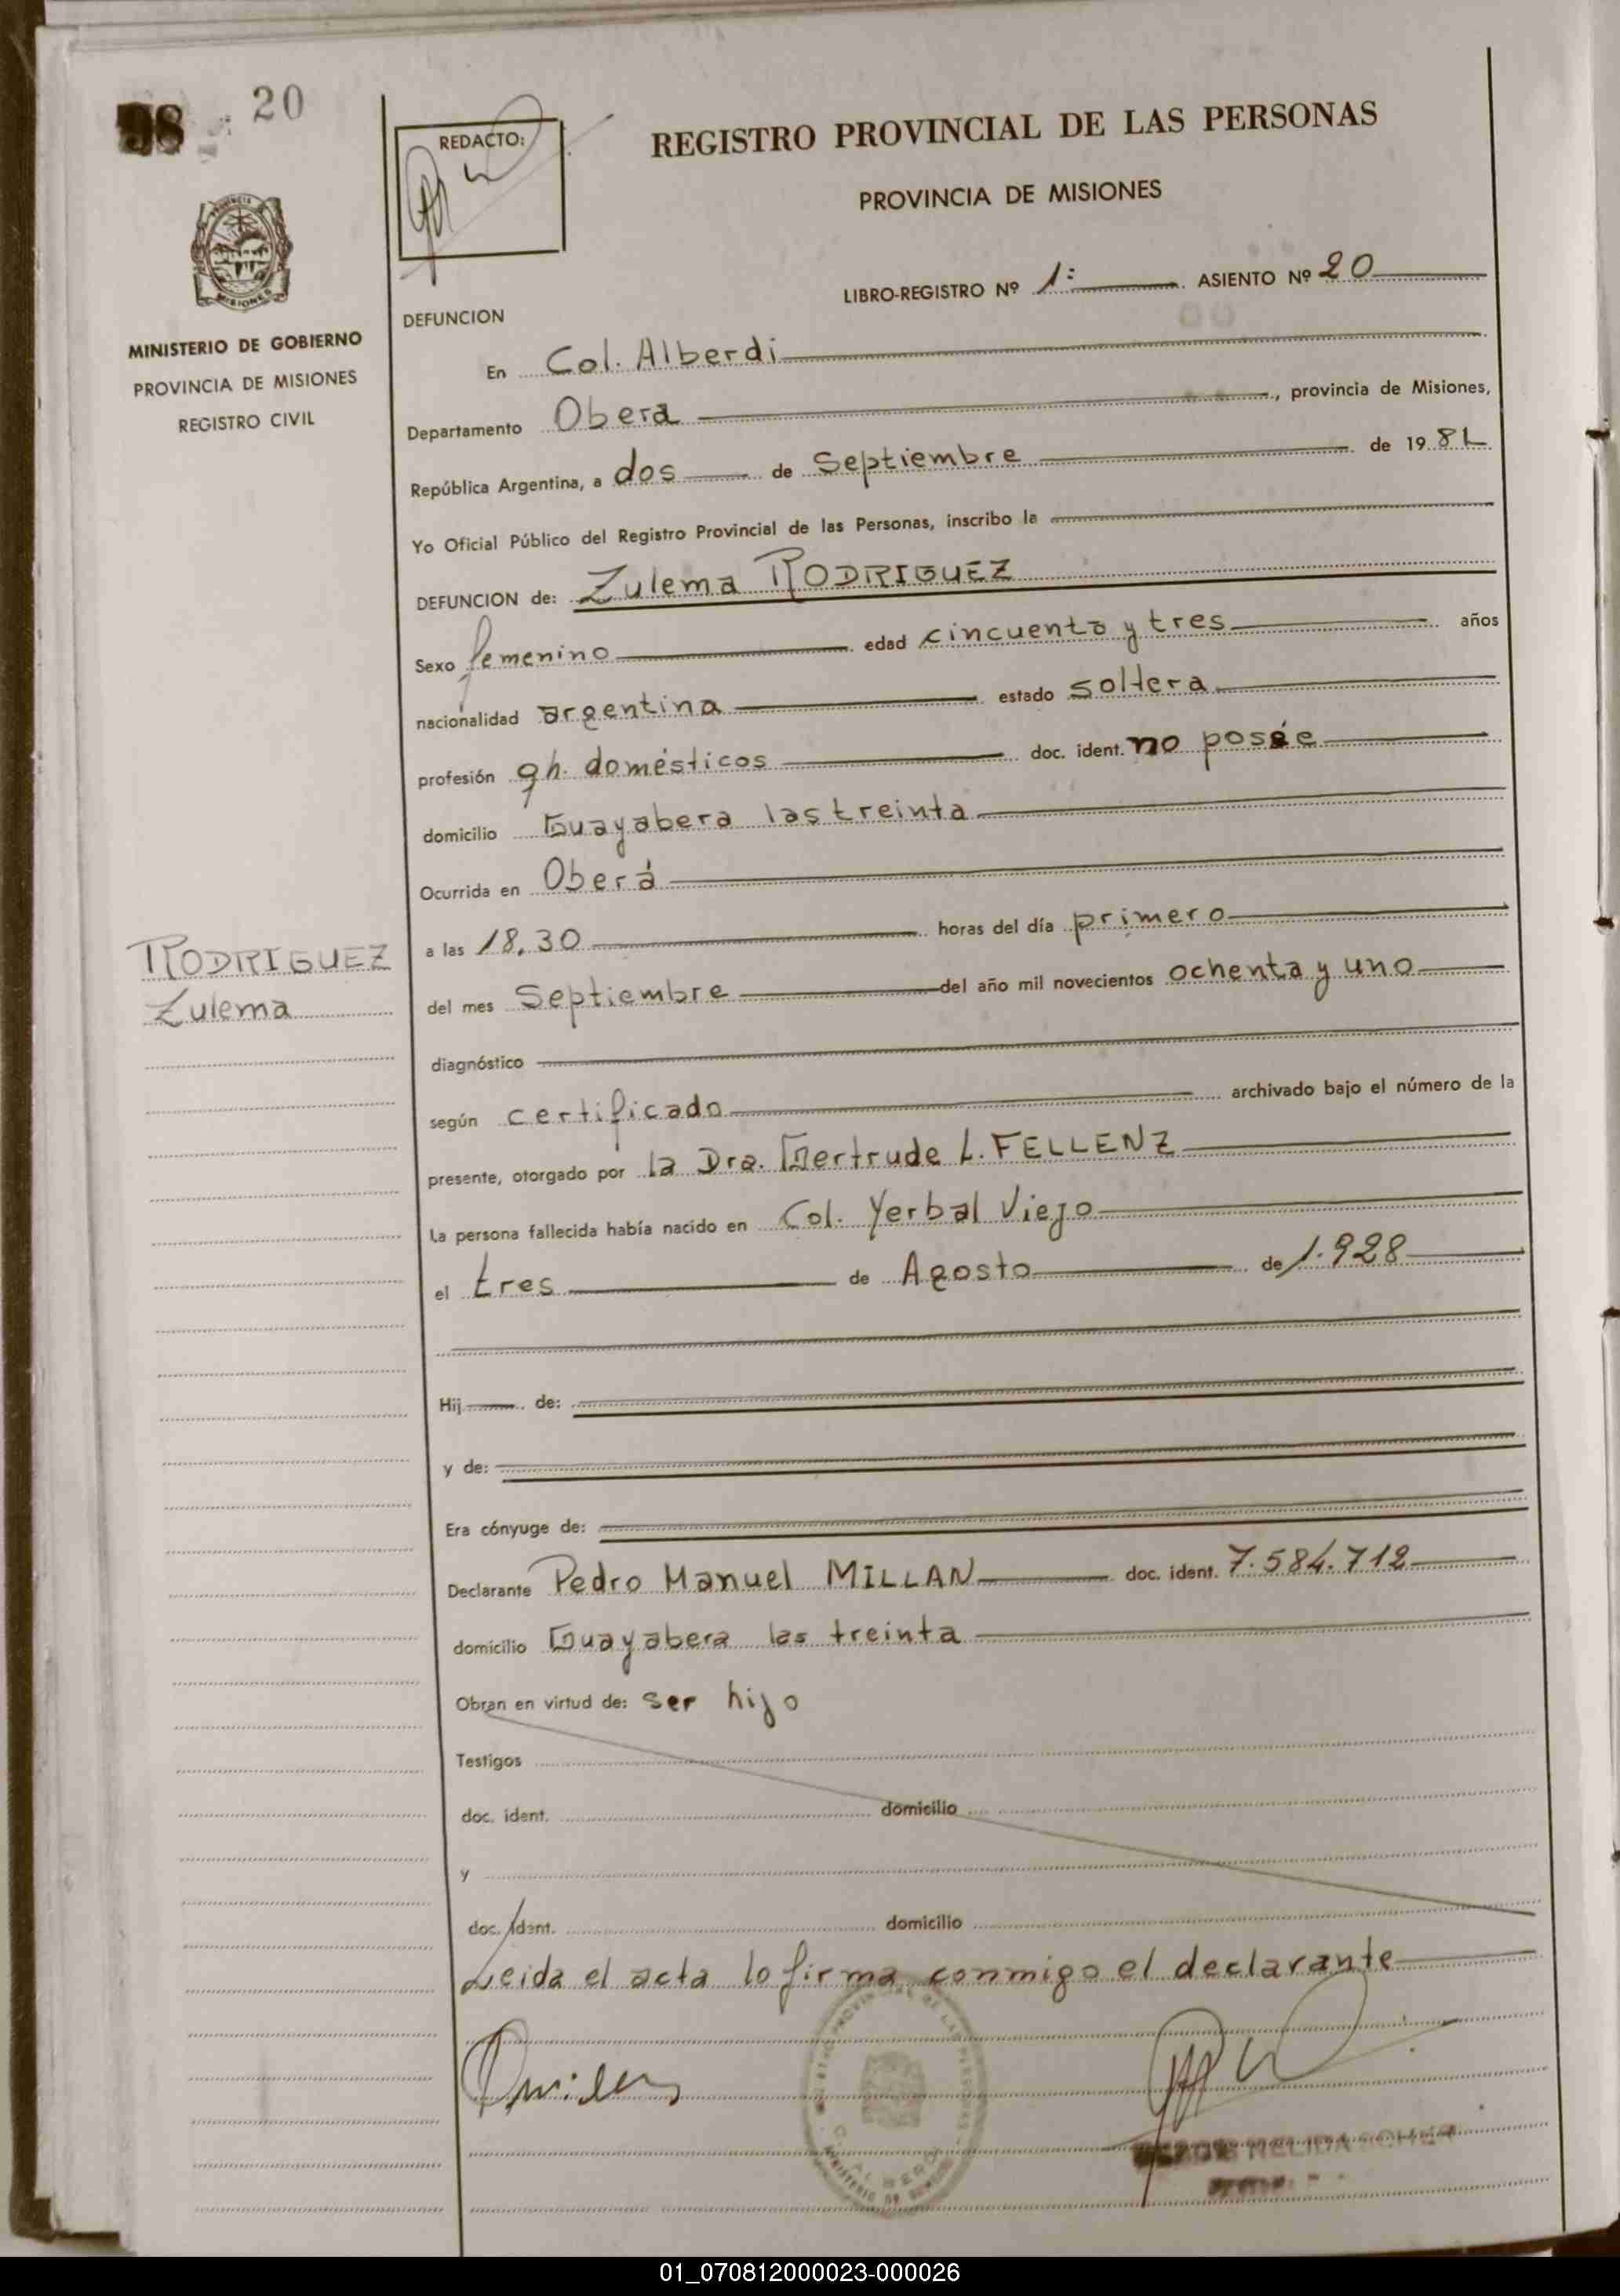 20
REDACTO:
REGISTRO PROVINCIAL DE LAS PERSONAS
PROVINCIA DE MISIONES
LIBRO-REGISTRO Nº 1: ASIENTO Nº 20
MINISTERIO DE GOBIERNO
PROVINCIA DE MISIONES
REGISTRO CIVIL
DEFUNCION
En Col. Alberdi
Departamento Oberá, provincia de Misiones,
República Argentina, a dos de Septiembre de 1981
Yo Oficial Público del Registro Provincial de las Personas, inscribo la
DEFUNCION de: Zulema RODRIGUEZ
Sexo femenino edad cincuenta y tres años
nacionalidad argentina estado soltera
profesión qh. domésticos doc. ident. no posée
domicilio Guayabera las treinta
Ocurrida en Oberá
RODRIGUEZ
Zulema
a las 18,30 horas del día primero
del mes Septiembre del año mil novecientos ochenta y uno
diagnóstico
según certificado archivado bajo el número de la
presente, otorgado por la Dra. Gertrude L. FELLENZ
La persona fallecida había nacido en Col. Yerbal Viejo
el tres de Agosto de 1.928
Hij de:
y de:
Era cónyuge de:
Declarante Pedro Manuel MILLAN doc. ident. 7.584.712
domicilio Guayabera las treinta
Obran en virtud de: ser hijo
Testigos
doc. ident. domicilio
y
doc. ident. domicilio
Leida el acta lo firma conmigo el declarante
01_070812000023-000026